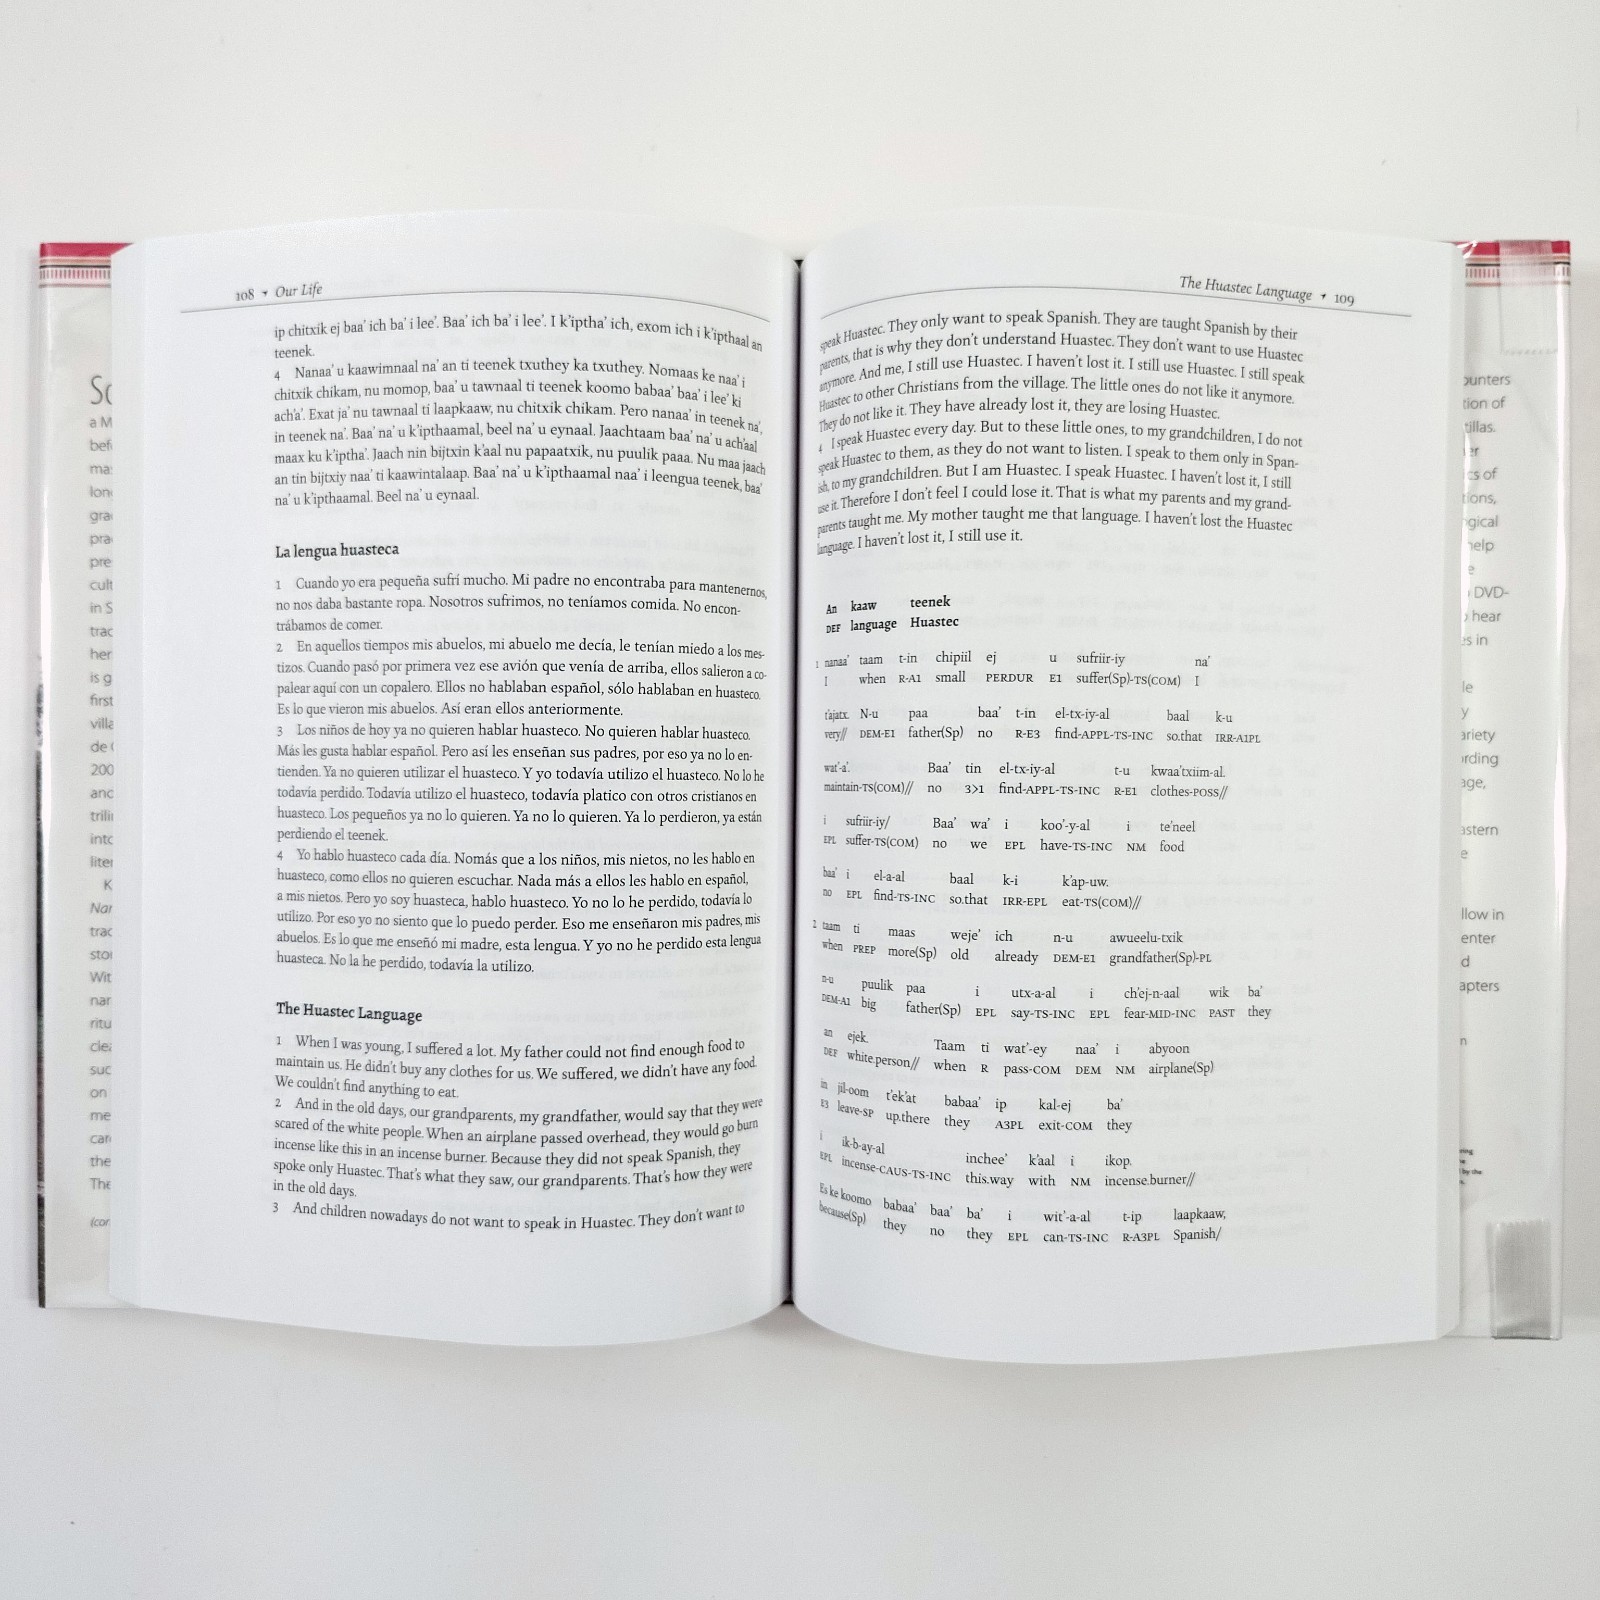 108 Our Life
ip chitxik ej baa' ich ba' i lee'. Baa' ich ba' i lee'. I k'iptha' ich, exom ich i k'ipthaal an
teenek.
4 Nanaa' u kaawimnaal na' an ti teenek txuthey ka txuthey. Nomaas ke naa' i
chitxik chikam, nu momop, baa' u tawnaal ti teenek koomo babaa' baa' i lee' ki
ach'a'. Exat ja' nu tawnaal ti laapkaaw, nu chitxik chikam. Pero nanaa' in teenek na',
in teenek na'. Baa' na' u k'ipthaamal, beel na' u eynaal. Jaachtaam baa' na' u ach'aal
maax ku k'iptha'. Jaach nin bijtxin k'aal nu papaatxik, nu puulik paaa. Nu maa jaach
an tin bijtxiy naa' ti kaawintalaap. Baa' na' u k'ipthaamal naa' i leengua teenek, baa'
na' u k'ipthaamal. Beel na' u eynaal.
La lengua huasteca
1 Cuando yo era pequeña sufrí mucho. Mi padre no encontraba para mantenernos,
no nos daba bastante ropa. Nosotros sufrimos, no teníamos comida. No encon-
trábamos de comer.
2 En aquellos tiempos mis abuelos, mi abuelo me decía, le tenían miedo a los mes-
tizos. Cuando pasó por primera vez ese avión que venía de arriba, ellos salieron a co-
palear aquí con un copalero. Ellos no hablaban español, sólo hablaban en huasteco.
Es lo que vieron mis abuelos. Así eran ellos anteriormente.
3 Los niños de hoy ya no quieren hablar huasteco. No quieren hablar huasteco.
Más les gusta hablar español. Pero así les enseñan sus padres, por eso ya no lo en-
tienden. Ya no quieren utilizar el huasteco. Y yo todavía utilizo el huasteco. No lo he
todavía perdido. Todavía utilizo el huasteco, todavía platico con otros cristianos en
huasteco. Los pequeños ya no lo quieren. Ya no lo quieren. Ya lo perdieron, ya están
perdiendo el teenek.
4 Yo hablo huasteco cada día. Nomás que a los niños, mis nietos, no les hablo en
huasteco, como ellos no quieren escuchar. Nada más a ellos les hablo en español,
a mis nietos. Pero yo soy huasteca, hablo huasteco. Yo no lo he perdido, todavía lo
utilizo. Por eso yo no siento que lo puedo perder. Eso me enseñaron mis padres, mis
abuelos. Es lo que me enseñó mi madre, esta lengua. Y yo no he perdido esta lengua
huasteca. No la he perdido, todavía la utilizo.
The Huastec Language
1 When I was young, I suffered a lot. My father could not find enough food to
maintain us. He didn't buy any clothes for us. We suffered, we didn't have any food.
We couldn't find anything to eat.
2 And in the old days, our grandparents, my grandfather, would say that they were
scared of the white people. When an airplane passed overhead, they would go burn
incense like this in an incense burner. Because they did not speak Spanish, they
spoke only Huastec. That's what they saw, our grandparents. That's how they were
in the old days.
3 And children nowadays do not want to speak in Huastec. They don't want to
The Huastec Language 109
speak Huastec. They only want to speak Spanish. They are taught Spanish by their
parents, that is why they don't understand Huastec. They don't want to use Huastec
anymore. And me, I still use Huastec. I haven't lost it. I still use Huastec. I still speak
Huastec to other Christians from the village. The little ones do not like it anymore.
They do not like it. They have already lost it, they are losing Huastec.
4 I speak Huastec every day. But to these little ones, to my grandchildren, I do not
speak Huastec to them, as they do not want to listen. I speak to them only in Span-
ish, to my grandchildren. But I am Huastec. I speak Huastec. I haven't lost it, I still
use it. Therefore I don't feel I could lose it. That is what my parents and my grand-
parents taught me. My mother taught me that language. I haven't lost the Huastec
language. I haven't lost it, I still use it.
An kaaw teenek
DEF language Huastec
1 nanaa' taam t-in chipiil ej u sufriir-iy na'
I when R-A1 small PERDUR E1 suffer(Sp)-TS(COM) I
t'ajatx. N-u paa baa' t-in el-tx-iy-al baal k-u
very// DEM-E1 father(Sp) no R-E3 find-APPL-TS-INC so.that IRR-A1PL
wat'-a'. Baa' tin el-tx-iy-al t-u kwaa'txiim-al.
maintain-TS(COM)// no 3>1 find-APPL-TS-INC R-E1 clothes-POSS//
i sufriir-iy/ Baa' wa' i koo'-y-al i te'neel
EPL suffer-TS(COM) no we EPL have-TS-INC NM food
baa' i el-a-al baal k-i k'ap-uw.
no EPL find-TS-INC so.that IRR-EPL eat-TS(COM)//
2 taam ti maas weje' ich n-u awueelu-txik
when PREP more(Sp) old already DEM-E1 grandfather(Sp)-PL
n-u puulik paa i utx-a-al i ch'ej-n-aal wik ba'
DEM-A1 big father(Sp) EPL say-TS-INC EPL fear-MID-INC PAST they
an ejek. Taam ti wat'-ey naa' i abyoon
DEF white.person// when R pass-COM DEM NM airplane(Sp)
in jil-oom t'ek'at babaa' ip kal-ej ba'
E3 leave-SP up.there they A3PL exit-COM they
i ik-b-ay-al inchee' k'aal i ikop.
EPL incense-CAUS-TS-INC this.way with NM incense.burner//
Es ke koomo babaa' baa' ba' i wit'-a-al t-ip laapkaaw,
because(Sp) they no they EPL can-TS-INC R-A3PL Spanish/